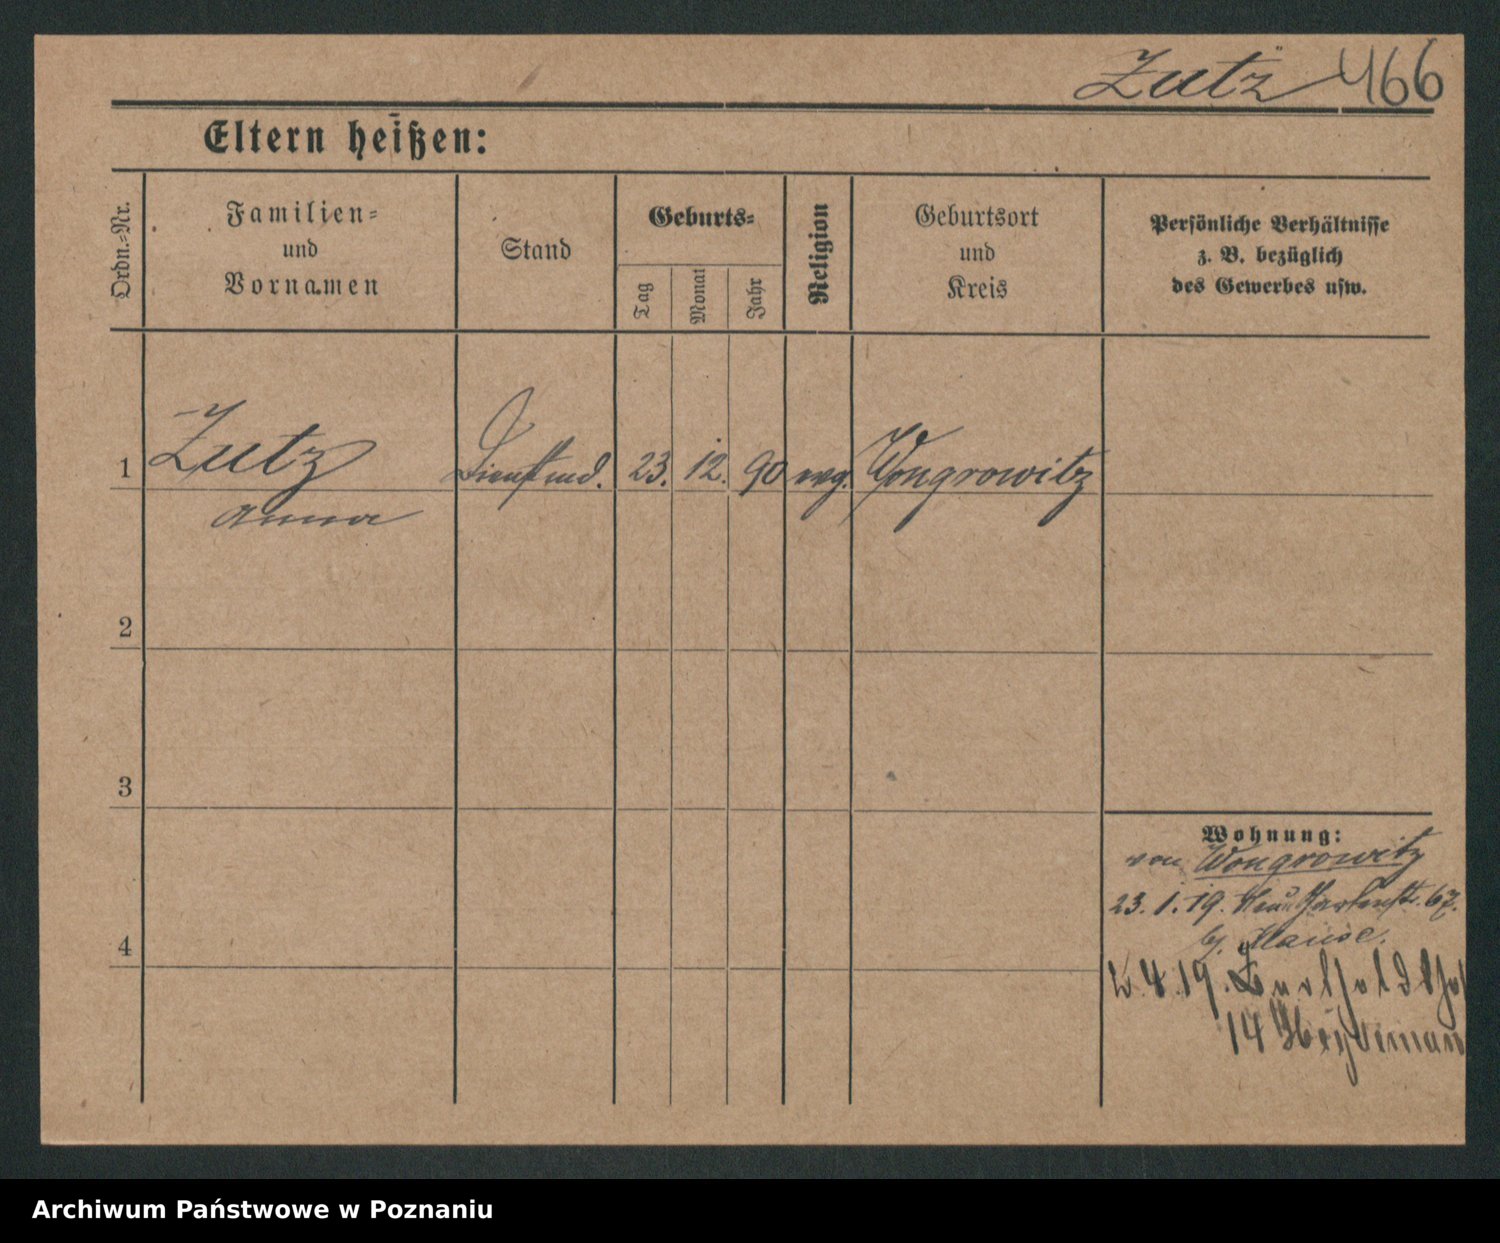 Zutz 466
Eltern heißen:
Ordn.-Nr.
Familien-
und
Vornamen
Stand
Geburts-
Tag
Monat
Jahr
Religion
Geburtsort
und
Kreis
Persönliche Verhältnisse
z. B. bezüglich
des Gewerbes usw.
1 Zutz Dienstmd. 23. 12. 90 evg. Wongrowitz
Anna
2
3
4
Wohnung:
von Wongrowitz
23. 1. 19. Neue Gartenstr. 67.
b.
2. 4. 19.
14
Archiwum Państwowe w Poznaniu